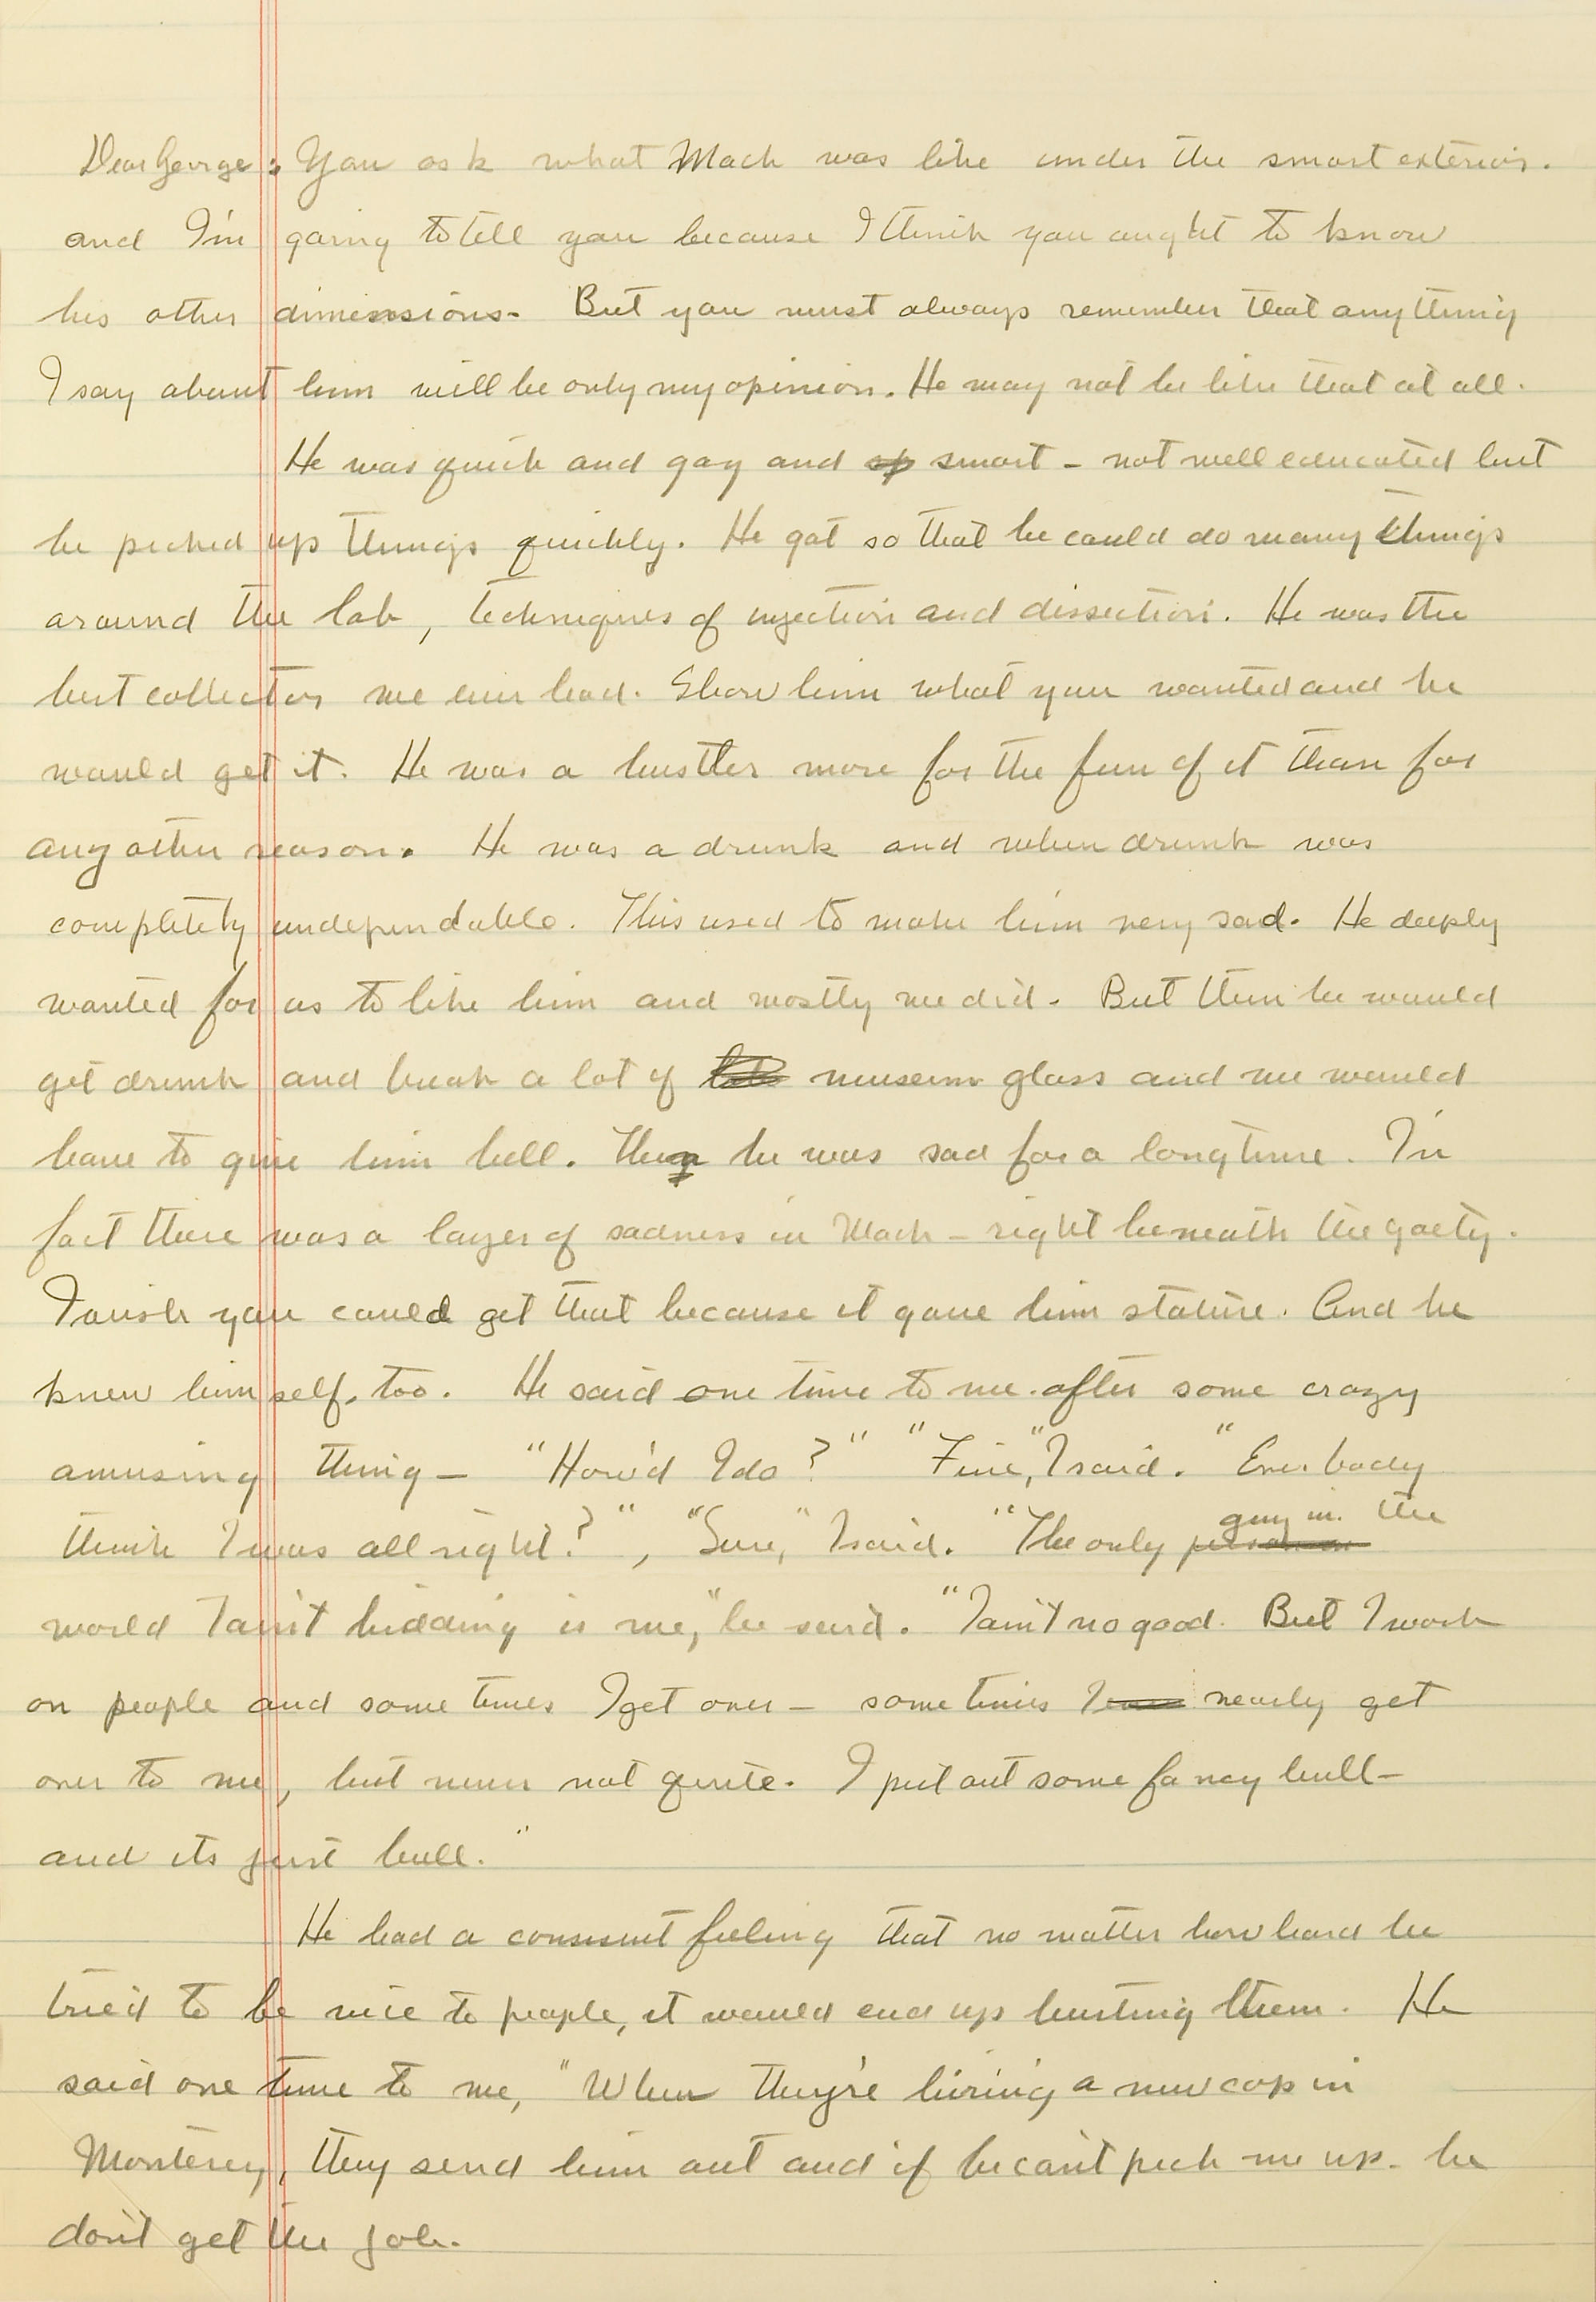 Dear George: You ask what Mack was like under the smart exterior.
and I'm going to tell you because I think you aught to know
his other dimensions. But you must always remember that anything
I say about him will be only my opinion. He may not be like that at all.
He was quick and gay and sp smart - not well educated but
he picked up things quickly. He got so that he could do many things
around the lab, techniques of injection and dissection. He was the
best collector we ever had. Show him what you wanted and he
would get it. He was a hustler more for the fun of it than for
any other reason. He was a drunk and when drunk was
completely undependable. This used to make him very sad. He deeply
wanted for us to like him and mostly we did. But then he would
get drunk and break a lot of museum glass and we would
have to give him hell. Then he was sad for a long time. In
fact there was a layer of sadness in Mack - right beneath the gaety.
I wish you could get that because it gave him stature. And he
knew himself, too. He said one time to me after some crazy
amusing thing - "How'd I do?" "Fine," I said. "Ever body
think I was all right?", "Sure," I said. "The only person guy in the
world I ain't kidding is me," he said. "I ain't no good. But I work
on people and some times I get over - some times I nearly get
over to me, but never not quite. I put out some fancy bull -
and its just bull."
He had a feeling that no matter how hard he
tried to be nice to people, it would end up hurting them. He
said one time to me, "When they're hiring a new cop in
Monterey, they send him out and if he can't pick me up. he
don't get the job.